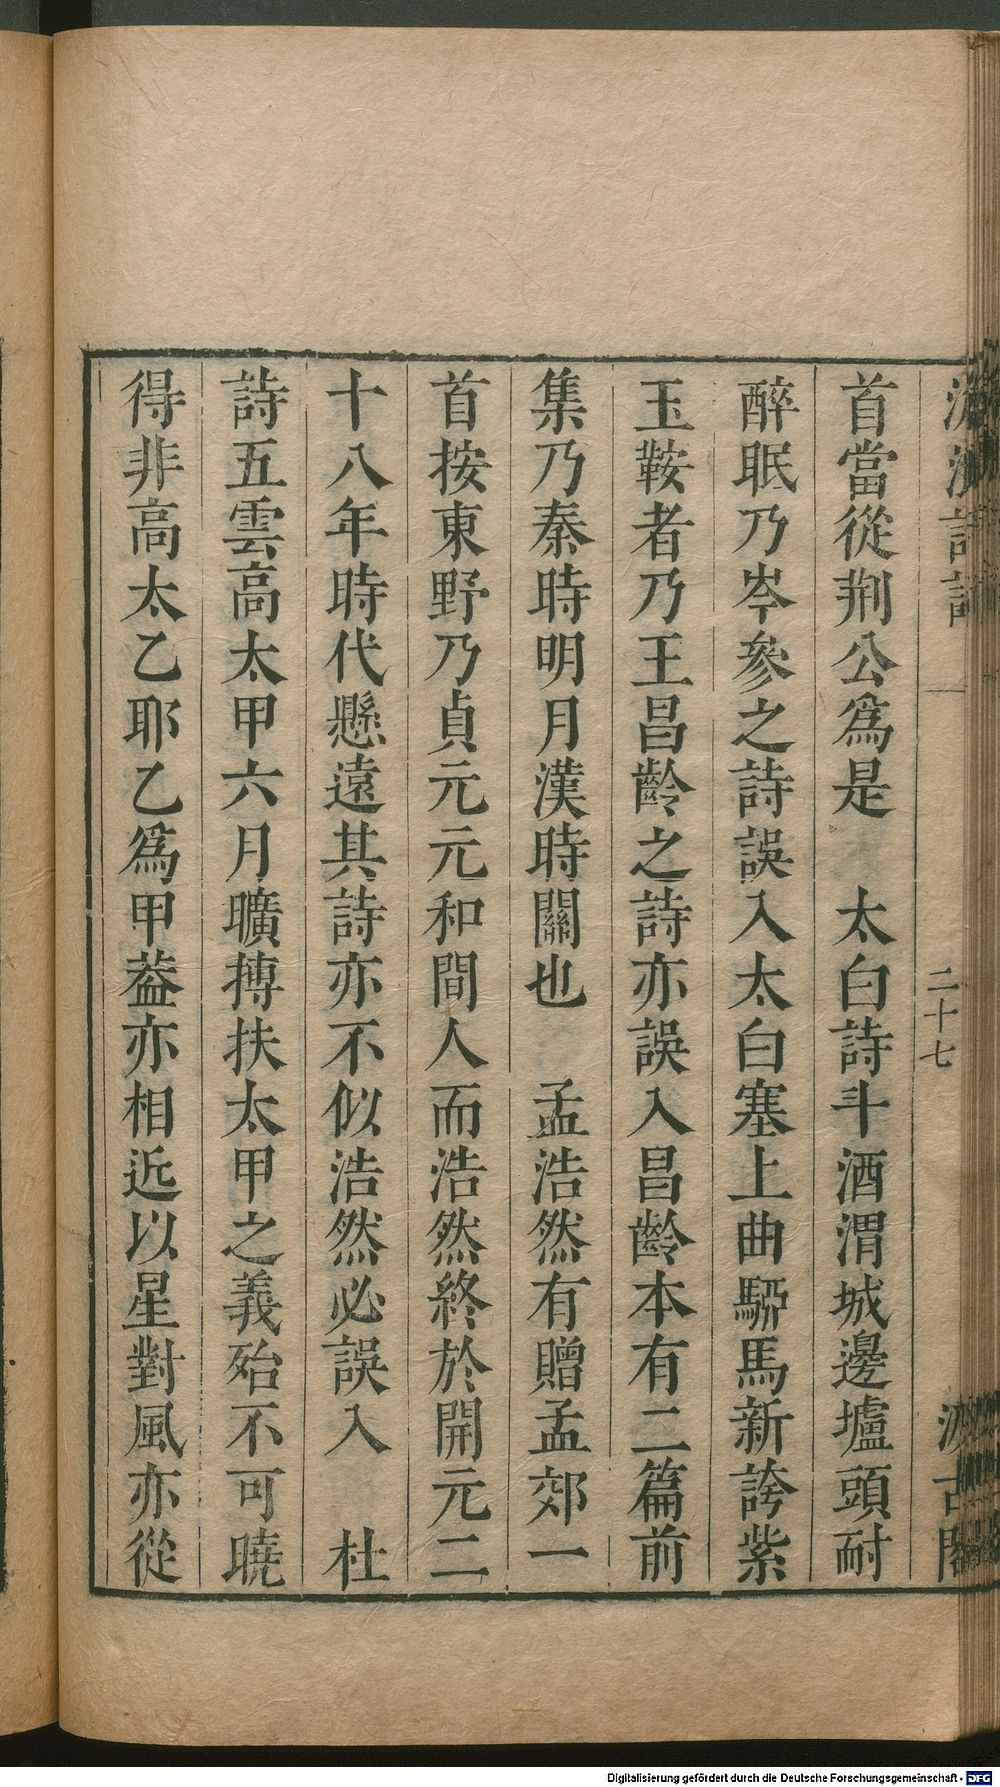 滄浪詩話
二十七
汲古閣
首當從荆公爲是　太白詩斗酒渭城邊壚頭耐
醉眠乃岑參之詩誤入太白塞上曲騮馬新誇紫
玉鞍者乃王昌齡之詩亦誤入昌齡本有二篇前
集乃秦時明月漢時關也　孟浩然有贈孟郊一
首按東野乃貞元元和間人而浩然終於開元二
十八年時代懸遠其詩亦不似浩然必誤入　杜
詩五雲高太甲六月曠摶扶太甲之義殆不可曉
得非高太乙耶乙爲甲葢亦相近以星對風亦從
Digitalisierung gefördert durch die Deutsche Forschungsgemeinschaft - DFG